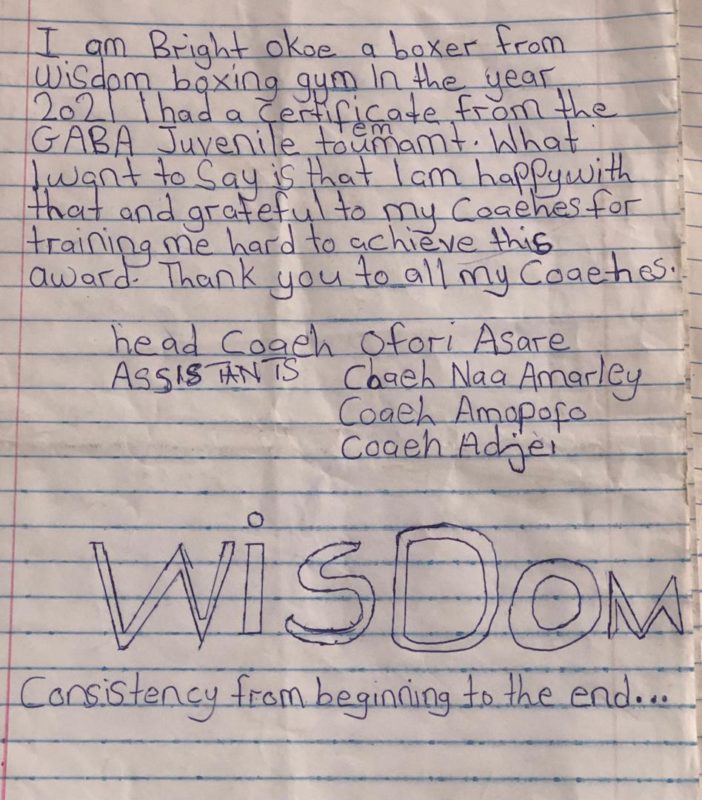 I am Bright okoe a boxer from
wisdom boxing gym In the year
2021 I had a certificate from the
GABA Juvenile tournamemt. What
I want to Say is that I am happy with
that and grateful to my Coaches for
training me hard to achieve this
award. Thank you to all my Coaches.
head Coach Ofori Asare
ASSISTANTS Coach Naa Amarley
Coach Amopofo
Coach Adjei
WiSDOM
Consistency from beginning to the end...